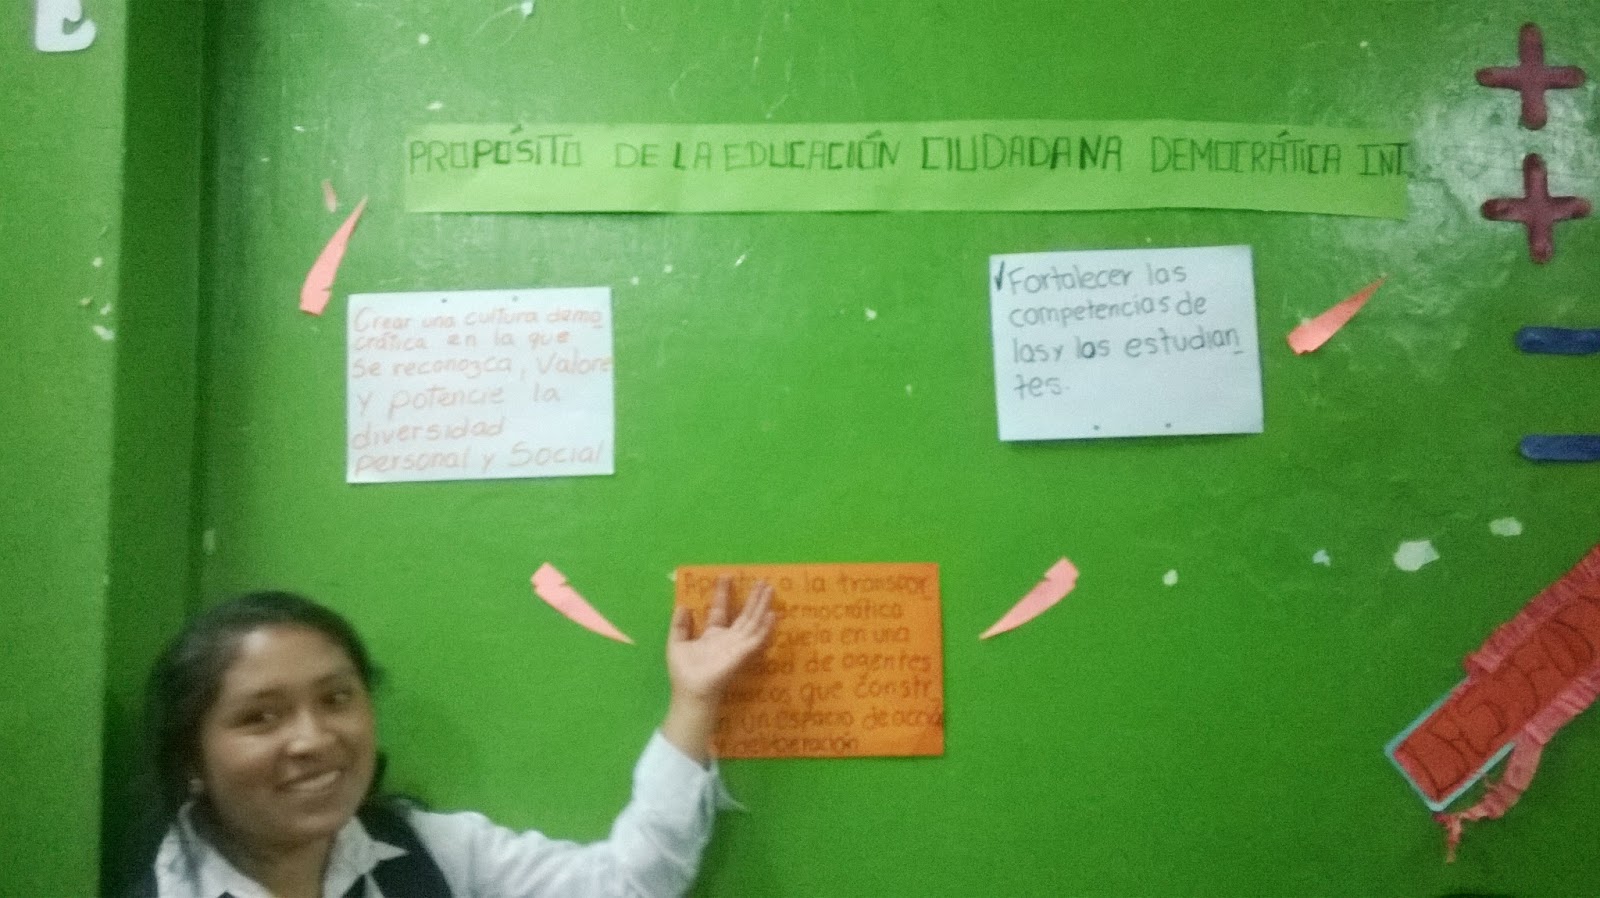 PROPÓSITO DE LA EDUCACIÓN CIUDADANA DEMOCRÁTICA INT.
Crear una cultura demo
crática en la que
se reconozca, Valore
y potencie la
diversidad
personal y Social
✓Fortalecer las
competencias de
las y los estudian
tes.
a la transfor
democrática
en una
de agentes
que constr
un espacio de acció
deliberación